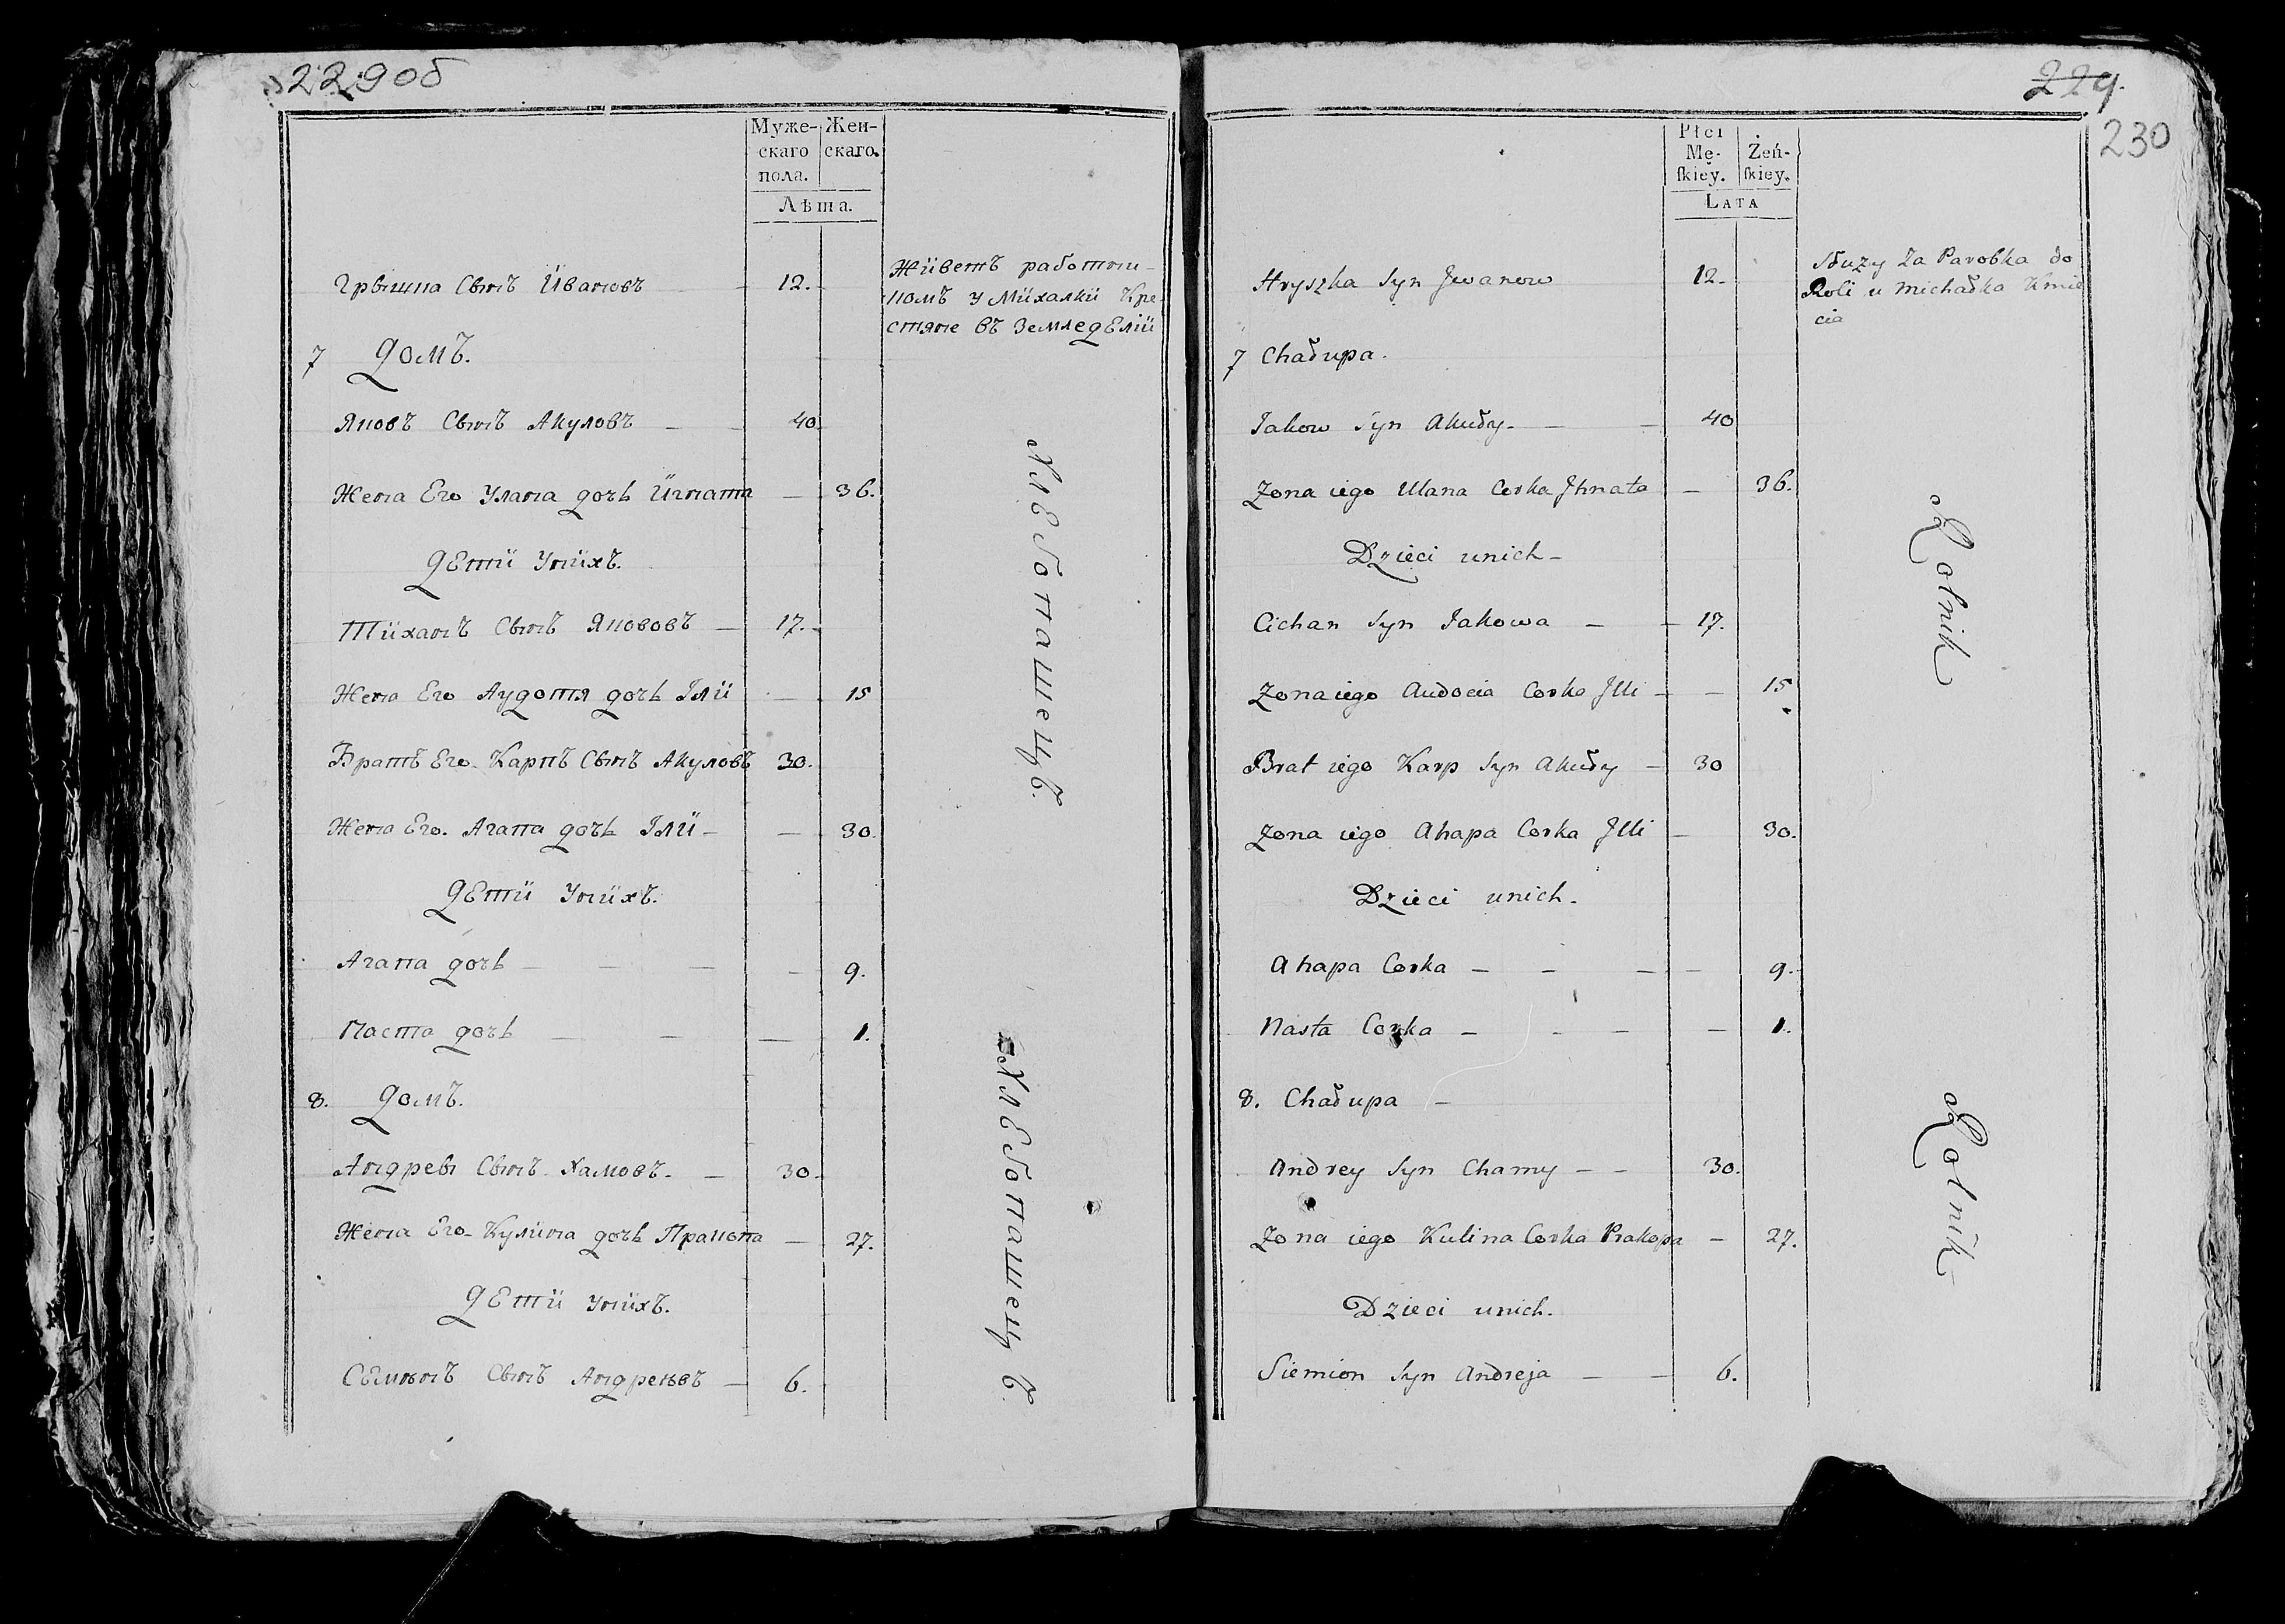 229об
Муже- Жен-
скаго скаго.
пола.
Лѣта.
Грышка Сынъ Ивановъ 12. Живетъ работни-
комъ у Михалки Кре-
стяне въ Земледелiи
7 Домъ.
Яковъ Сынъ Акуловъ — 40.
Жена Его Улана дочь Игната — 36.
Дети Унихъ.
Тиханъ Сынъ Якововъ — 17. —
Жена Его Аудотя дочь Iли — 15
Братъ Его Карпъ Сынъ Акуловъ 30.
Жена Его. Агапа дочь Iли — — 30.
Дети Унихъ.
Агапа дочь — — — — 9.
Наста дочь — — — 1.
Хлебопашецъ.
8. Домъ.
Андрей Сынъ Хамовъ. — 30.
Жена Его Кулина дочь Пракопа — 27.
Дети Унихъ.
Сѣмионъ Сынъ Андреевъ — 6.
Хлебопашецъ.
229.
230
Płci
Mę- Żeń-
ſkiey. ſkiey.
LATA
Hryszka Syn Jwanow 12. Służy za Parobka do
Roli u Michałka Kmie
cia
7 Chałupa.
Jakow Syn Akuły — — 40
Zona iego Ulana Corka Jhnata — 36.
Dzieci unich —
Cichan Syn Jakowa — — 17.
Zona iego Audocia Corka Jlli — — 15
Brat iego Karp Syn Akuły — 30
Zona iego Ahapa Corka Jlli — 30.
Dzieci unich.
Ahapa Corka — — — — 9.
Nasta Corka — — — — 1.
Rolnik
8. Chałupa —
Andrey Syn Chamy — — 30.
Zona iego Kulina Corka Prakopa — 27.
Dzieci unich.
Siemion Syn Andreja — — 6.
Rolnik